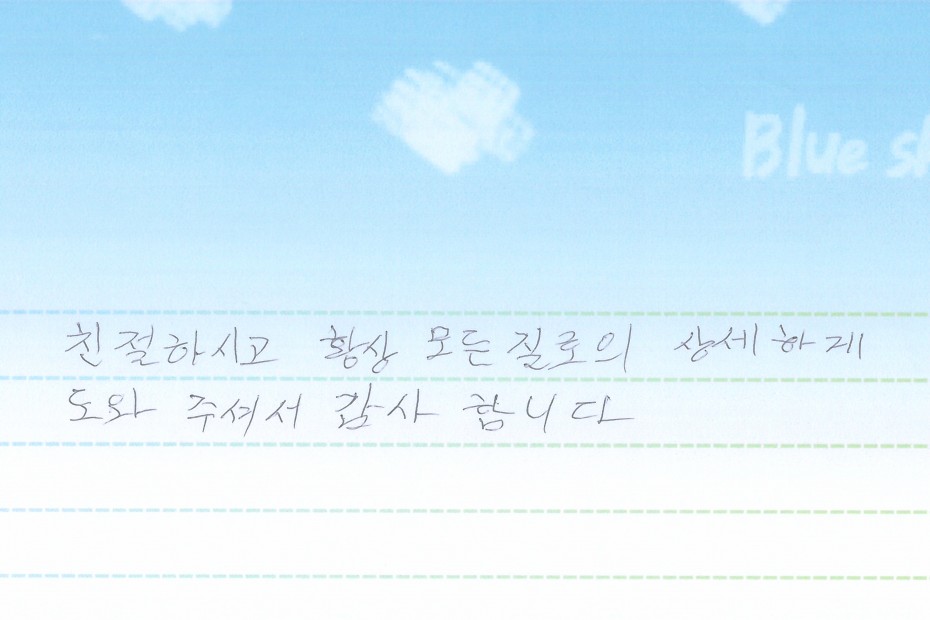 Blue sk
친절하시고 항상 모든질로의 상세하게
도와 주셔서 감사 합니다